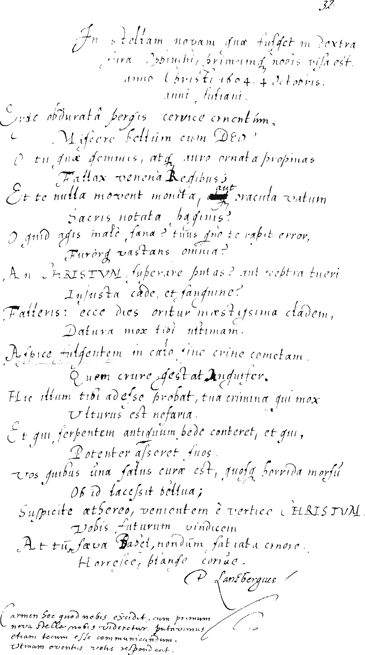 32
In stellam novam quæ fulget in dextra
visa est.
anno Christi 1604. 4 Octobris.
anni Juliani.
obdurata pergis cervice cruentum,
Miscere bellum cum DEO?
O tu quæ gemmis, atq auro ornata propinas
Fallax venena Regibus;
Et te nulla movent monita, aut oracula vatum
Sacris notata paginis?
O quid agis male sana? tuus quo te rapit error,
Furorq vastans omnia?
An CHRISTVM superare putas? aut sceptra tueri
Injusta cæde, et sanguine?
Falleris: ecce dies oritur mæstissima cladem,
Datura mox tibi ultimam.
Aspice fulgentem in cælo sine crine cometam.
Quem crure gestat Anguifer.
Hic illum tibi adesse probat, tua crimina qui mox
Vlturus est nefaria.
Et qui serpentem antiquum pede conteret, et qui,
Potenter asseret suos.
Vos quibus una salus curæ est, quosq horrida morsu
Ob id lacessit bellua;
Suspicite æthereo, venientem è vertice CHRISTVM.
Vobis futurum vindicem
At tu sæva Babel, nondum satiata cruore.
Horresce, plange corrue.
P Lansbergius
Carmen hoc quod nobis excidit, cum primum
nova stella nobis videretur putavimus
etiam tecum esse communicandum.
Vtinam eventus votis respondeat.